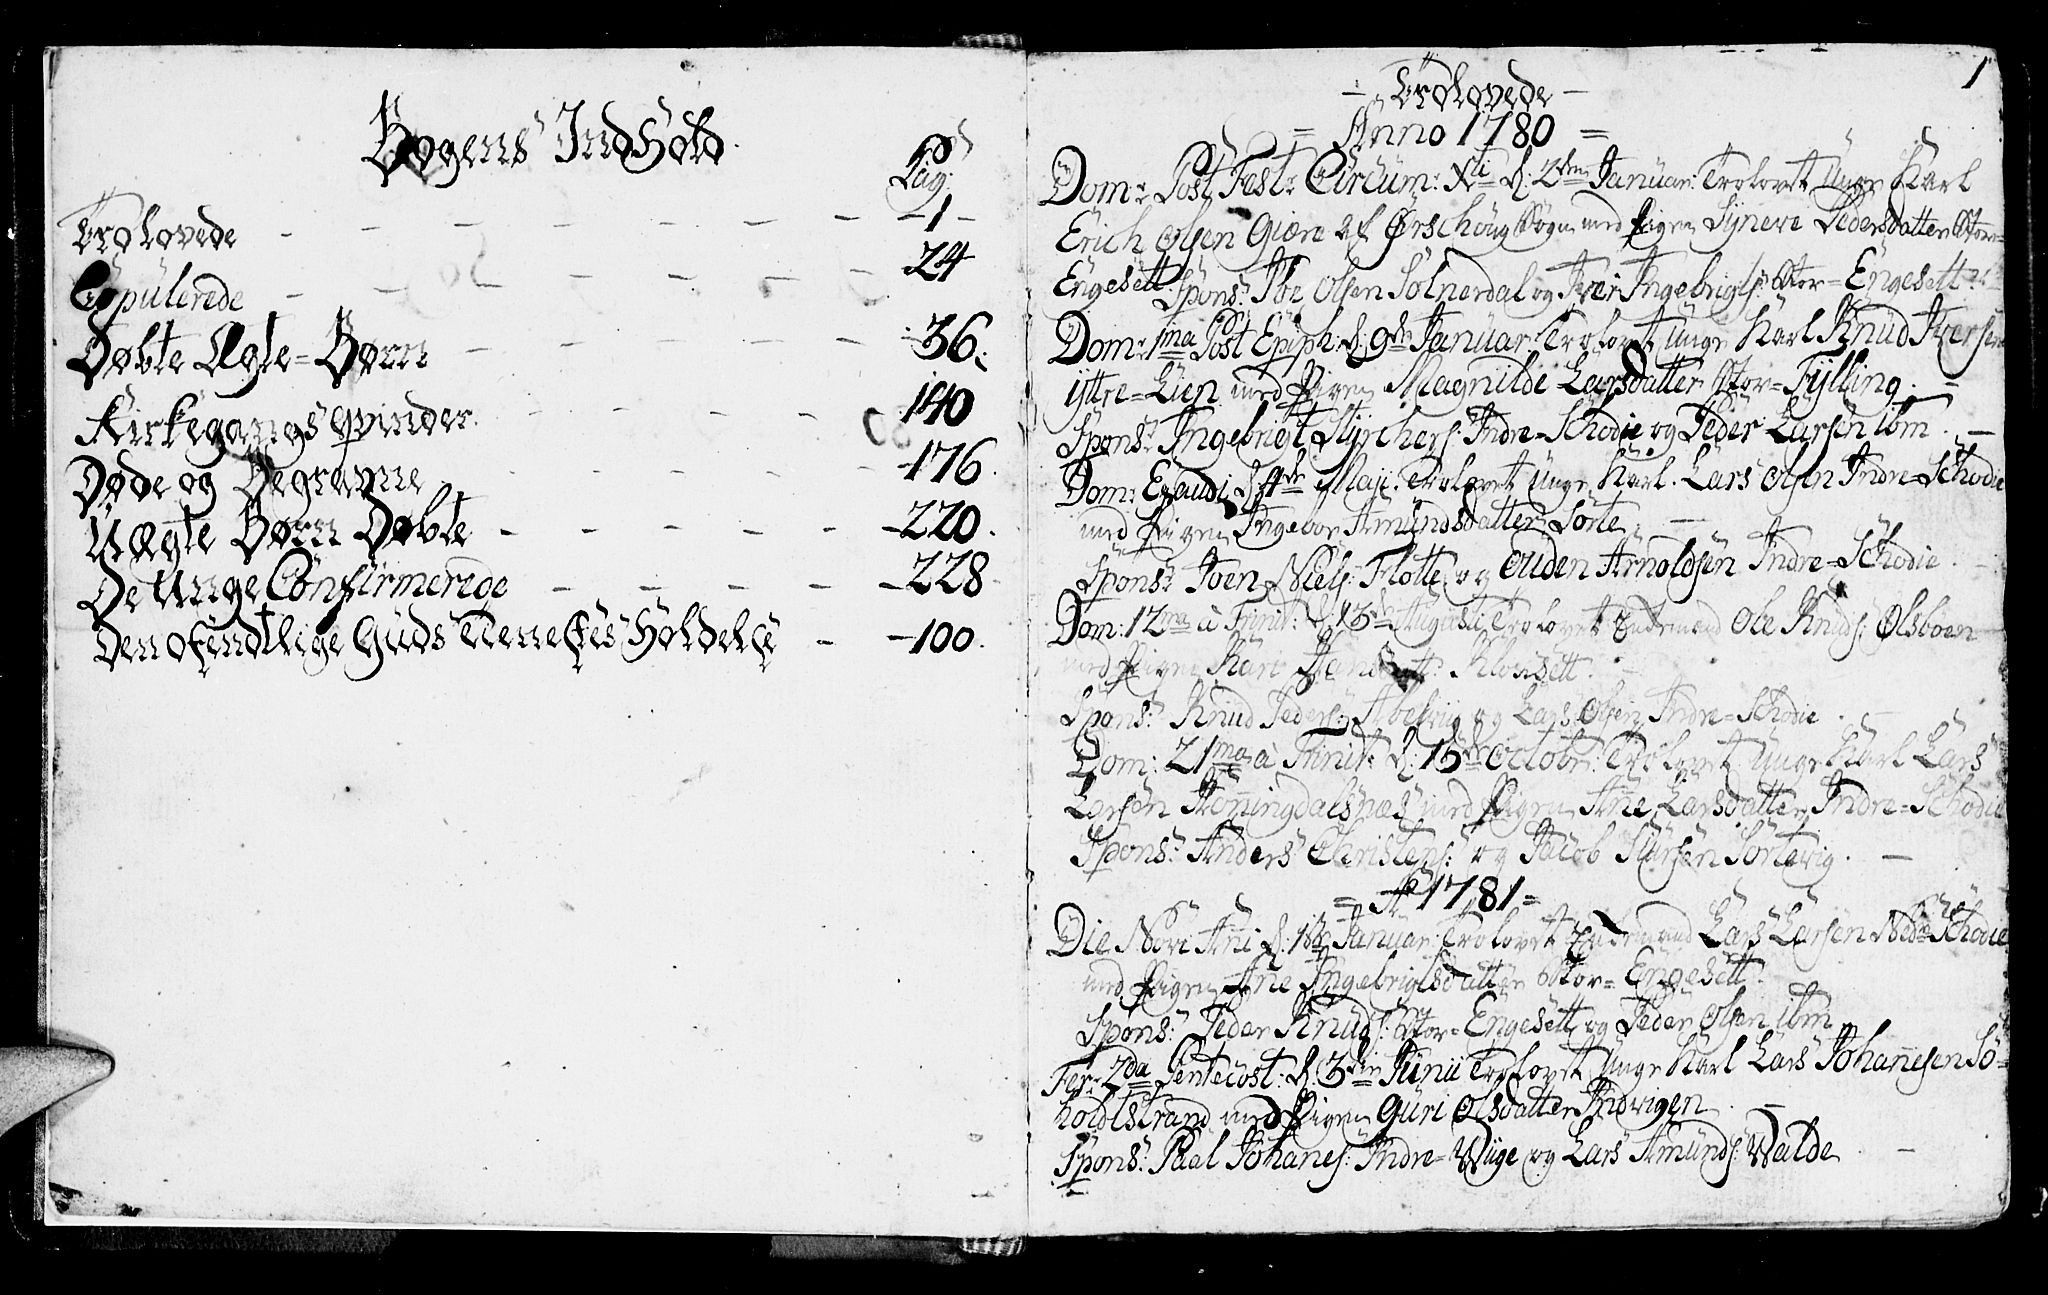 Bogens Indhold
Pag:
Trolovede - - - - - - - - - 1 -
Copulerede - - - - - - - - 24
Døbte Ægte=Børn - - - - - - 36.
Kirkegangsqvinder - - - - - 140
Døde og Begravne - - - - - - 176.
Uægte Børn Døbte - - - - - - 220.
De Unge Confirmerede - - - - - 228
Den ofendtlige Guds Tienestes Holdelse - - 100.
1
- Trolovede -
= Anno 1780 =
Dom: Post Fest: Circum: Xti d: 2den Januar: Trolovet Unge Karl
Erich Olsen Giære af Ørschoug Sogn med Pigen Synneve Pedersdatter Stor=
Engesett. Spons: Ole Olsen Solnerdal og Iver Ingebrigts: Stor=Engesett
Dom: 1ma Post Epiph: d: 9de Januar Trolovet Unge Karl Knud Iversen
yttre=Lien med Pigen Magnilde Larsdatter Stor=Fylling. -
Spons: Ingebrigt Styrchers: Indre=Schodie og Peder Larsen ibm. -
Dom: Exaudi d: Maji: Trolovet Unge Karl Lars Olsen Indre=Schodie
med Pigen Ingebor Amundsdatter Sorte. -
Spons: Joen Niels: Flotte og Ouden Arnoldsen Indre=Schodie. -
Dom: 12ma à Trinit: d: 13de Augusti Trolovet Enkemand Ole Knuds: Olsboen
med Pigen Kari Klousett. -
Spons: Knud Peders: og Lars Olsen Indre=Schodie. -
Dom: 21ma à Trinit: d: 15de Octobr: Trolovet Unge Karl Lars
Larsen Honningdalsnæs med Pigen Ane Larsdatter Indre=Schodie
Spons: Anders Christens: og Jacob Siursen Sortevig. -
= Ao 1781 =
Die Novi Ani d: 1ste Januar: Trolovet Enkemand Lars Larsen Nedre Schodie
med Pigen Ane Ingebrigtsdatter Stor=Engesett.
Spons: Peder Knuds: Stor=Engesett og Peder Olsen ibm
Fer: 2da Pentecost: d: 3die Junii Trolovet Unge Karl Lars Johannesen So=
holdtstrand med Pigen Guri Olsdatter Andvigen. -
Spons: Paal Johanes: Indre=Viige og Lars Amunds: Valde. -